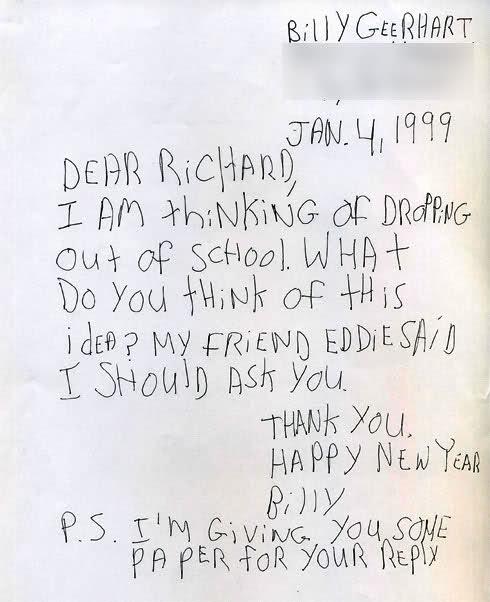 Billy GEERHART
JAN. 4, 1999
DEAR RiCHARD,
I AM thiNKiNG of DROPPiNG
out of SCHOOl. WHAt
Do You tHiNk of tHis
idEA? MY FRiEND EDDiE SAiD
I SHOUlD ASk YOU.
THANk YOU.
HAPPY NEW YEAR
Billy
P.S. I'M GiViNG YOU SOME
PAPER FOR YOUR REPlY